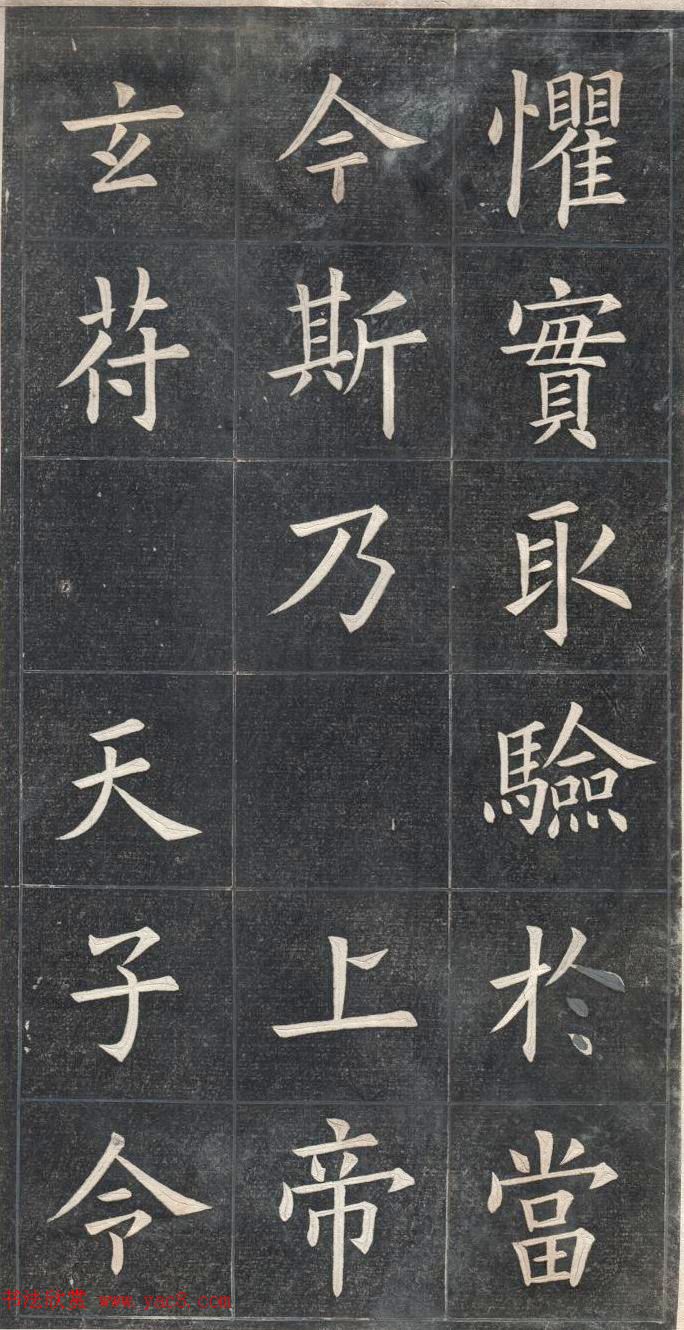 懼實取驗於當
今斯乃上帝
玄苻天子令
书法欣赏 www.yac8.com